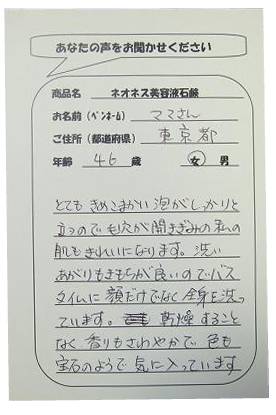 あなたの声をお聞かせください
商品名 ネオネス美容液石鹸
お名前(ペンネーム) ママさん
ご住所(都道府県) 東京都
年齢 46 歳 女 男
とても きめこまかい 泡がしっかりと
立つので 毛穴が開きぎみの 私の
肌もきれいになります。洗い
あがりもきもちが良いのでバス
タイムに 顔だけでなく 全身を洗っ
ています。乾燥すること
なく 香りもさわやかで 色も
宝石のようで 気に入っています